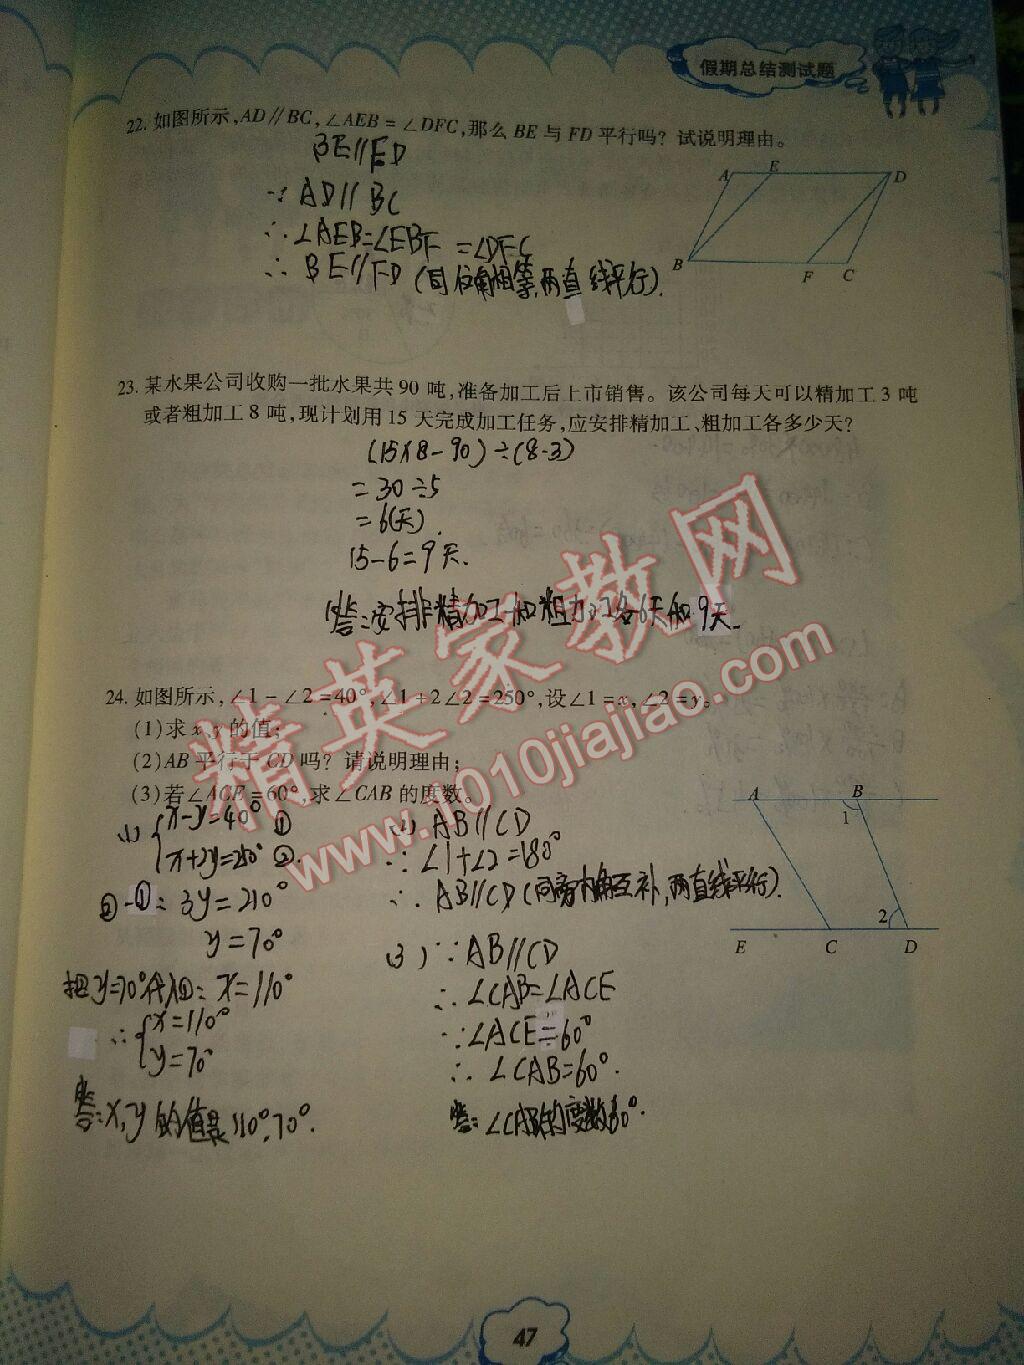 假期总结测试题
22. 如图所示,AD∥BC,∠AEB=∠DFC,那么 BE 与 FD 平行吗? 试说明理由。
BE∥FD
∵ AD∥BC
∴ ∠AEB=∠EBF =∠DFC
∴ BE∥FD (同位角相等,两直线平行).
A E D
B F C
23. 某水果公司收购一批水果共 90 吨,准备加工后上市销售。该公司每天可以精加工 3 吨
或者粗加工 8 吨,现计划用 15 天完成加工任务,应安排精加工、粗加工各多少天?
(15×8-90)÷(8-3)
=30÷5
=6(天)
15-6=9天.
答:安排精加工和粗加工各6天和9天.
24. 如图所示,∠1-∠2=40°,∠1+2∠2=250°,设∠1=x,∠2=y。
(1)求 x,y 的值;
(2)AB 平行于 CD 吗? 请说明理由;
(3)若∠ACE=60°,求∠CAB 的度数。
(1) x-y=40° ①
x+2y=250° ②.
②-①: 3y=210°
y=70°
把y=70°代入①: x=110°
∴ x=110°
y=70°
答:x,y的值是110°,70°.
AB∥CD
∵ ∠1+∠2=180°
∴ AB∥CD (同旁内角互补,两直线平行).
(3) ∵AB∥CD
∴ ∠CAB=∠ACE
∵∠ACE=60°
∴ ∠CAB=60°.
答:∠CAB的度数60°.
A B
1
2
E C D
精英家教网
www.1010jiajiao.com
47